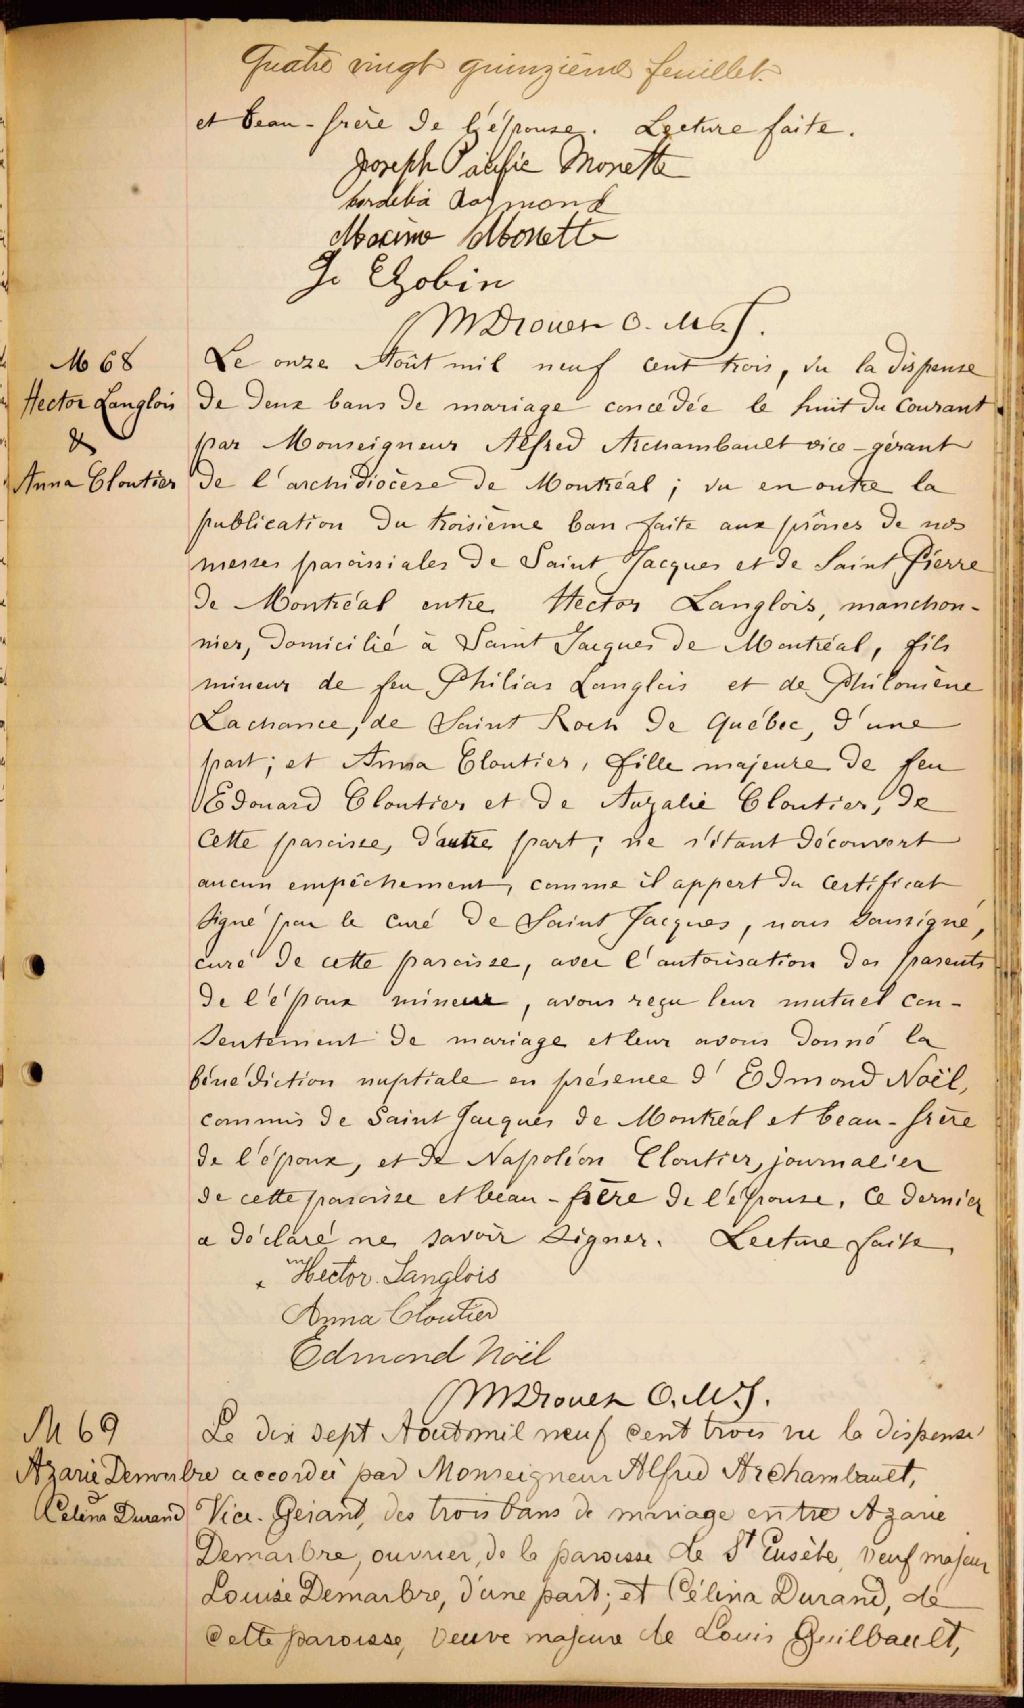 Quatre vingt quinzième feuillet.
et beau-frère de l'épouse. Lecture faite.
Joseph Pacific Monette
Cordelia Raymond
Maxime Monette
Jo E Gobin
M Drouet O. M. J.
M 68
Hector Langlois
&
Anna Cloutier
Le onze Août mil neuf cent trois, vu la dispense
de deux bans de mariage concédée le huit du courant
par Monseigneur Alfred Archambault vice-gérant
de l'archidiocèse de Montréal ; vu en outre la
publication du troisième ban faite aux prônes de nos
messes paroissiales de Saint Jacques et de Saint Pierre
de Montréal entre Hector Langlois, manchon-
nier, domicilié à Saint Jacques de Montréal, fils
mineur de feu Philias Langlois et de Philomène
Lachance, de Saint Roch de Québec, d'une
part ; et Anna Cloutier, fille majeure de feu
Edouard Cloutier et de Auzalie Cloutier, de
cette paroisse, d'autre part ; ne s'étant découvert
aucun empêchement, comme il appert du certificat
signé par le curé de Saint Jacques, nous soussigné,
curé de cette paroisse, avec l'autorisation des parents
de l'époux mineur, avons reçu leur mutuel con-
sentement de mariage et leur avons donné la
bénédiction nuptiale en présence d'Edmond Noël,
commis de Saint Jacques de Montréal et beau-frère
de l'époux, et de Napoléon Cloutier, journalier
de cette paroisse et beau-frère de l'épouse. Ce dernier
a déclaré ne savoir signer. Lecture faite
Hector Langlois
Anna Cloutier
Edmond Noël
M Drouet O. M. J.
M 69
Azarie Demarbre
&
Celina Durand
Le dix sept Aout mil neuf cent trois vu la dispense
accordée par Monseigneur Alfred Archambault,
Vice-Gérant, des trois bans de mariage entre Azarie
Demarbre, ouvrier, de la paroisse de St Eusèbe, veuf majeur
Louise Demarbre, d'une part ; et Célina Durand, de
cette paroisse, veuve majeure de Louis Guilbault,